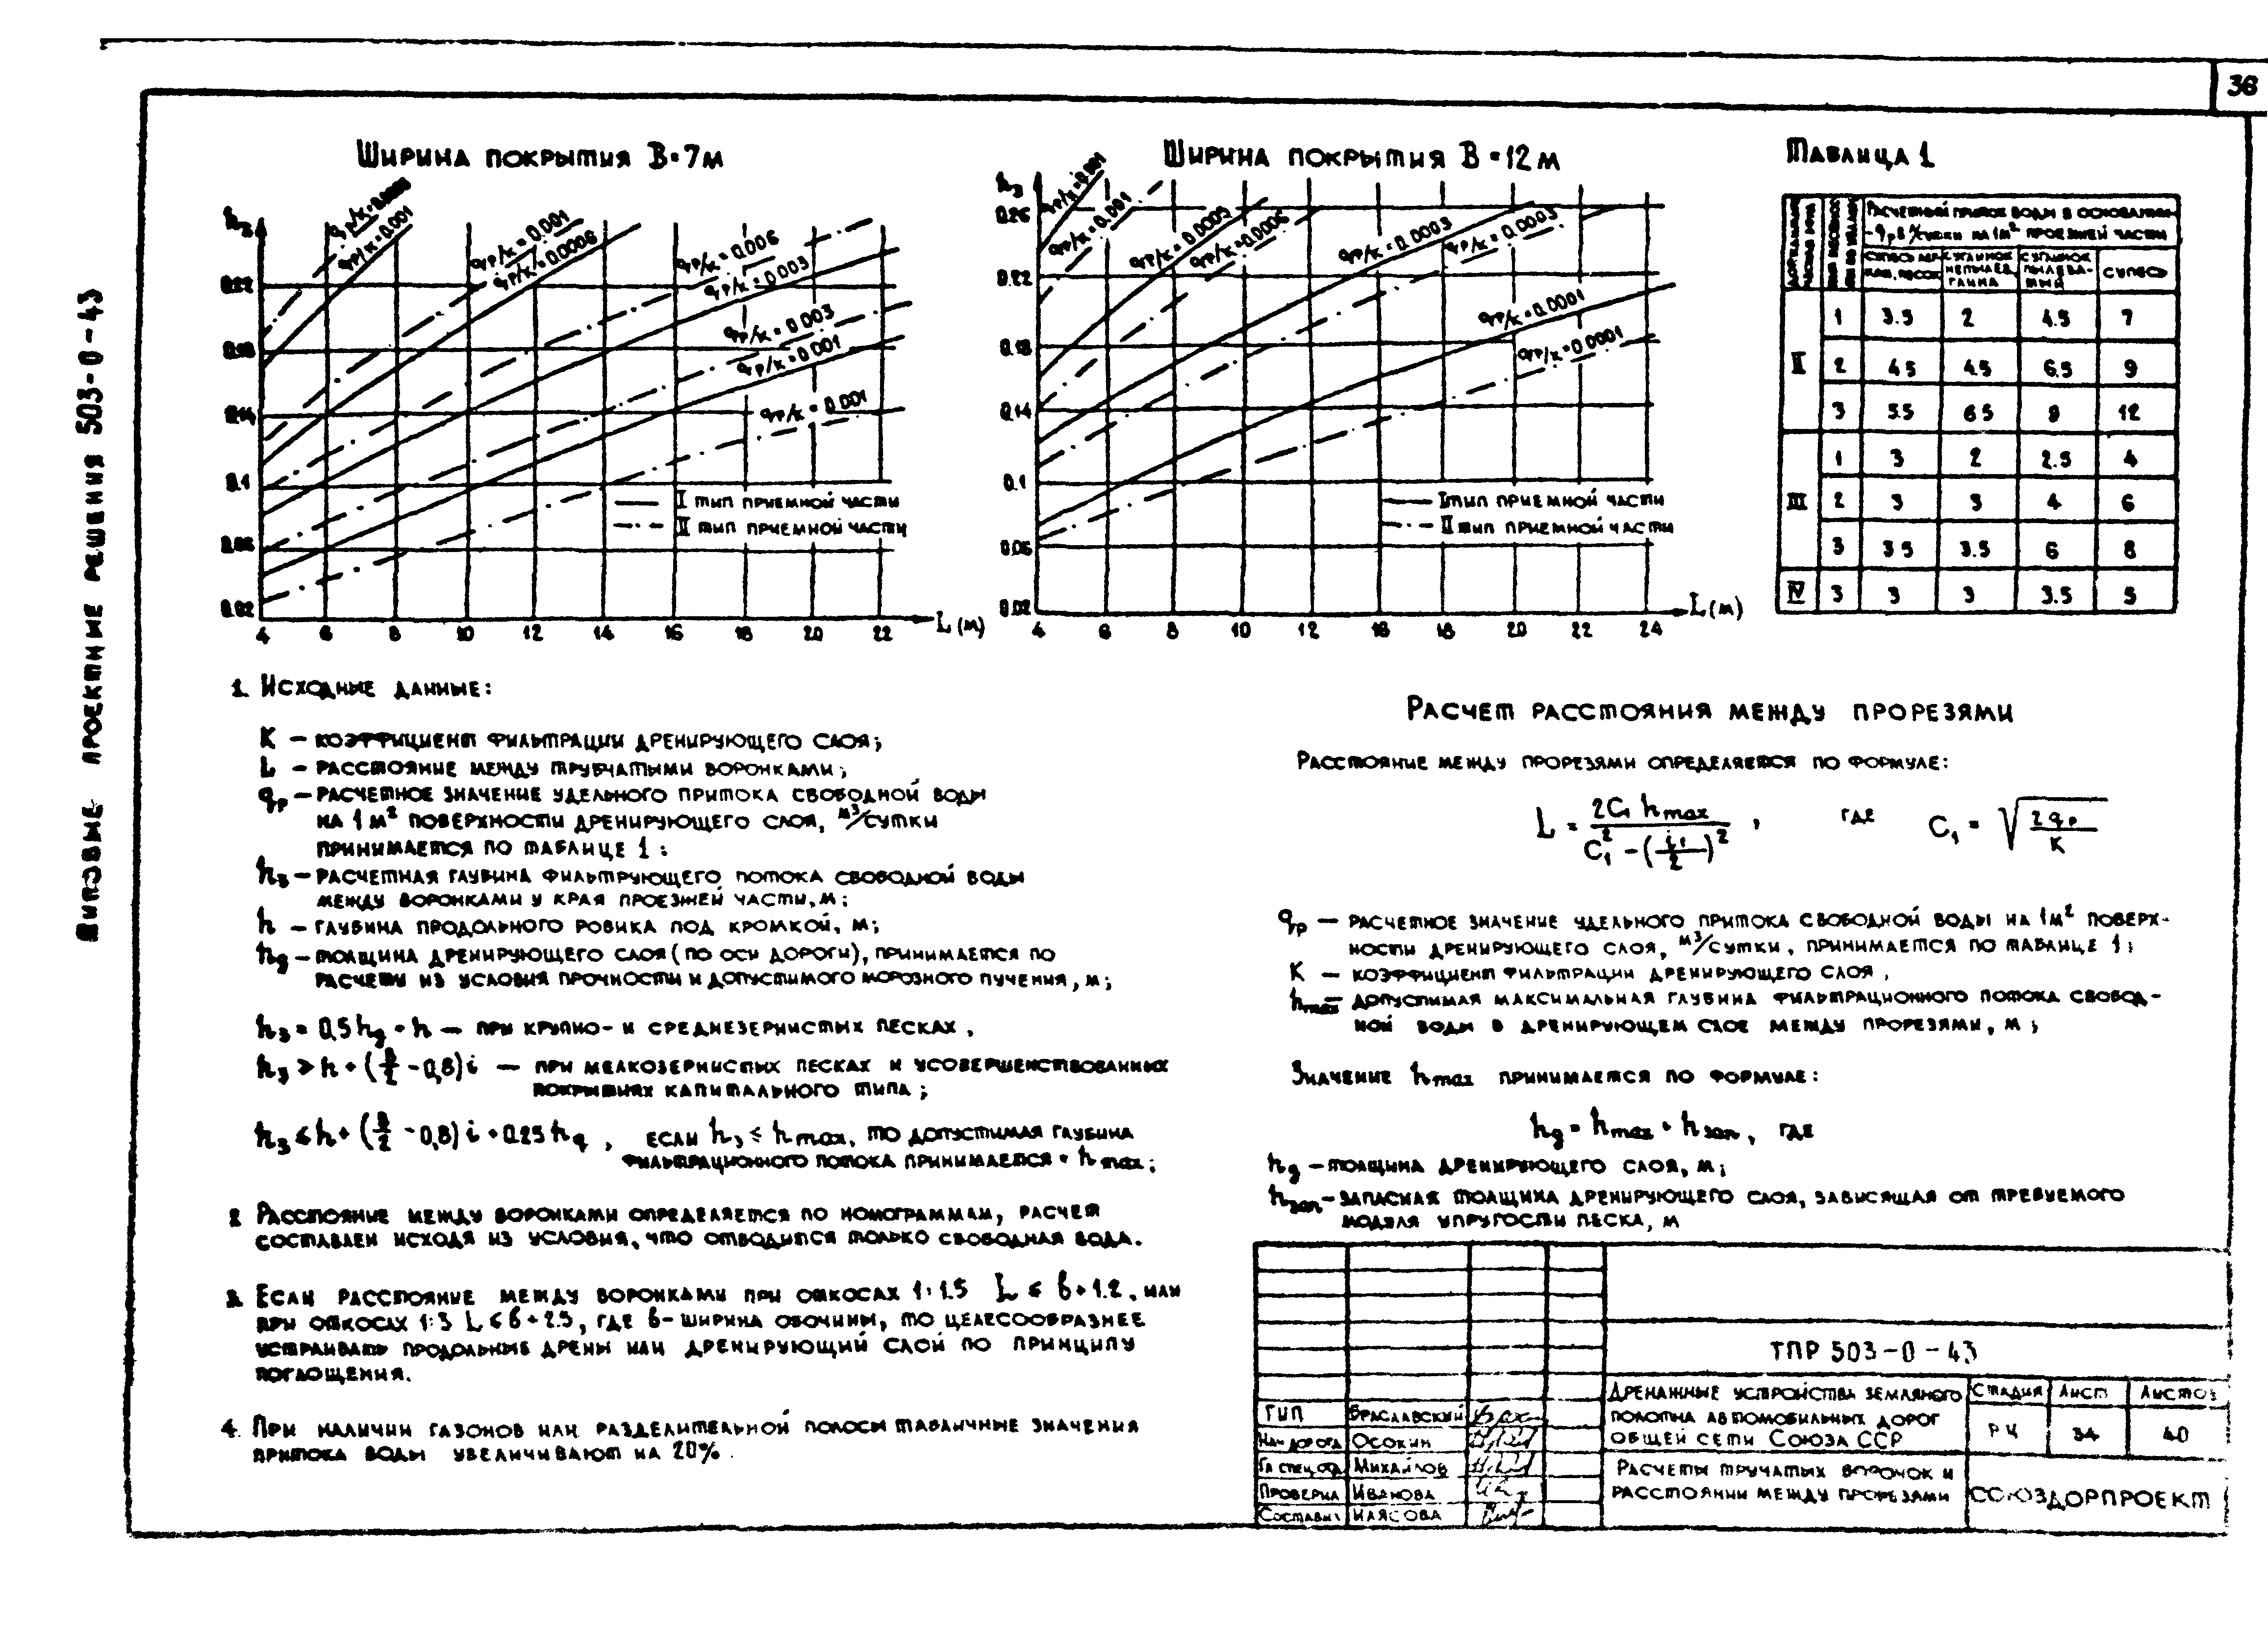 36
Типовые проектные решения 503-0-43
Ширина покрытия В=7м
h₃
0.22
0.18
0.14
0.1
0.06
0.02
4 6 8 10 12 14 16 18 20 22 L(м)
qр/к=0.001
qр/к=0.001
qр/к=0.0006
qр/к=0.006
qр/к=0.003
qр/к=0.003
qр/к=0.001
qр/к=0.001
I тип приемной части
II тип приемной части
Ширина покрытия В=12м
h₃
0.26
0.22
0.18
0.14
0.1
0.06
0.02
4 6 8 10 12 16 18 20 22 24 L(м)
qр/к=0.001
qр/к=0.001
qр/к=0.0005
qр/к=0.0006
qр/к=0.0003
qр/к=0.0003
qр/к=0.0001
qр/к=0.0001
I тип приемной части
II тип приемной части
Таблица 1
Расчетный приток воды в основании
на 1м² проезжей части
Суглинок непылев. глина
Суглинок пылеватый
Супесь
II 1 3.5 2 4.5 7
2 4.5 4.5 6.5 9
3 5.5 6.5 9 12
III 1 3 2 2.5 4
2 3 3 4 6
3 3.5 3.5 6 8
IV 3 3 3 3.5 5
1. Исходные данные:
К – коэффициент фильтрации дренирующего слоя;
L – расстояние между трубчатыми воронками;
qр – расчетное значение удельного притока свободной воды
на 1м² поверхности дренирующего слоя, м³/сутки
принимается по таблице 1:
h₃ – расчетная глубина фильтрующего потока свободной воды
между воронками у края проезжей части, м;
h – глубина продольного ровика под кромкой, м;
hg – толщина дренирующего слоя (по оси дороги), принимается по
расчету из условия прочности и допустимого морозного пучения, м;
h₃ = 0,5hg + h – при крупно- и среднезернистых песках,
h₃ ≥ h + (B/2 - 0,8)i – при мелкозернистых песках и усовершенствованных
покрытиях капитального типа;
h₃ ≤ h + (B/2 - 0,8)i + 0.25hg, если h₃ ≤ hmax, то допустимая глубина
фильтрационного потока принимается = hmax;
2 Расстояние между воронками определяется по номограммам, расчет
составлен исходя из условия, что отводится только свободная вода.
3. Если расстояние между воронками при откосах 1:1.5 L ≤ b + 1.2, или
при откосах 1:3 L ≤ b + 2.5, где b – ширина обочины, то целесообразнее
устраивать продольные дрены или дренирующий слой по принципу
поглощения.
4. При наличии газонов или разделительной полосы табличные значения
притока воды увеличивают на 20%.
Расчет расстояния между прорезями
Расстояние между прорезями определяется по формуле:
L = 2C₁ hmax / (C₁² - (i₁/2)²), где C₁ = √(2qр/К)
qр – расчетное значение удельного притока свободной воды на 1м² поверх-
ности дренирующего слоя, м³/сутки, принимается по таблице 1;
К – коэффициент фильтрации дренирующего слоя,
hmax – допустимая максимальная глубина фильтрационного потока свобод-
ной воды в дренирующем слое между прорезями, м;
Значение hmax принимается по формуле:
hg = hmax + hзап, где
hg – толщина дренирующего слоя, м;
hзап – запасная толщина дренирующего слоя, зависящая от требуемого
модуля упругости песка, м
ТПР 503-0-43
Дренажные устройства земляного
полотна автомобильных дорог
общей сети Союза ССР
Стадия Лист Листов
РЧ 34 40
Расчеты тручатых воронок и
расстоянии между прорезями
Союздорпроект
ГИП Браславский
Нач дорога Осокин
Гл спец.од Михайлов
Проверил Иванова
Составил Илясова